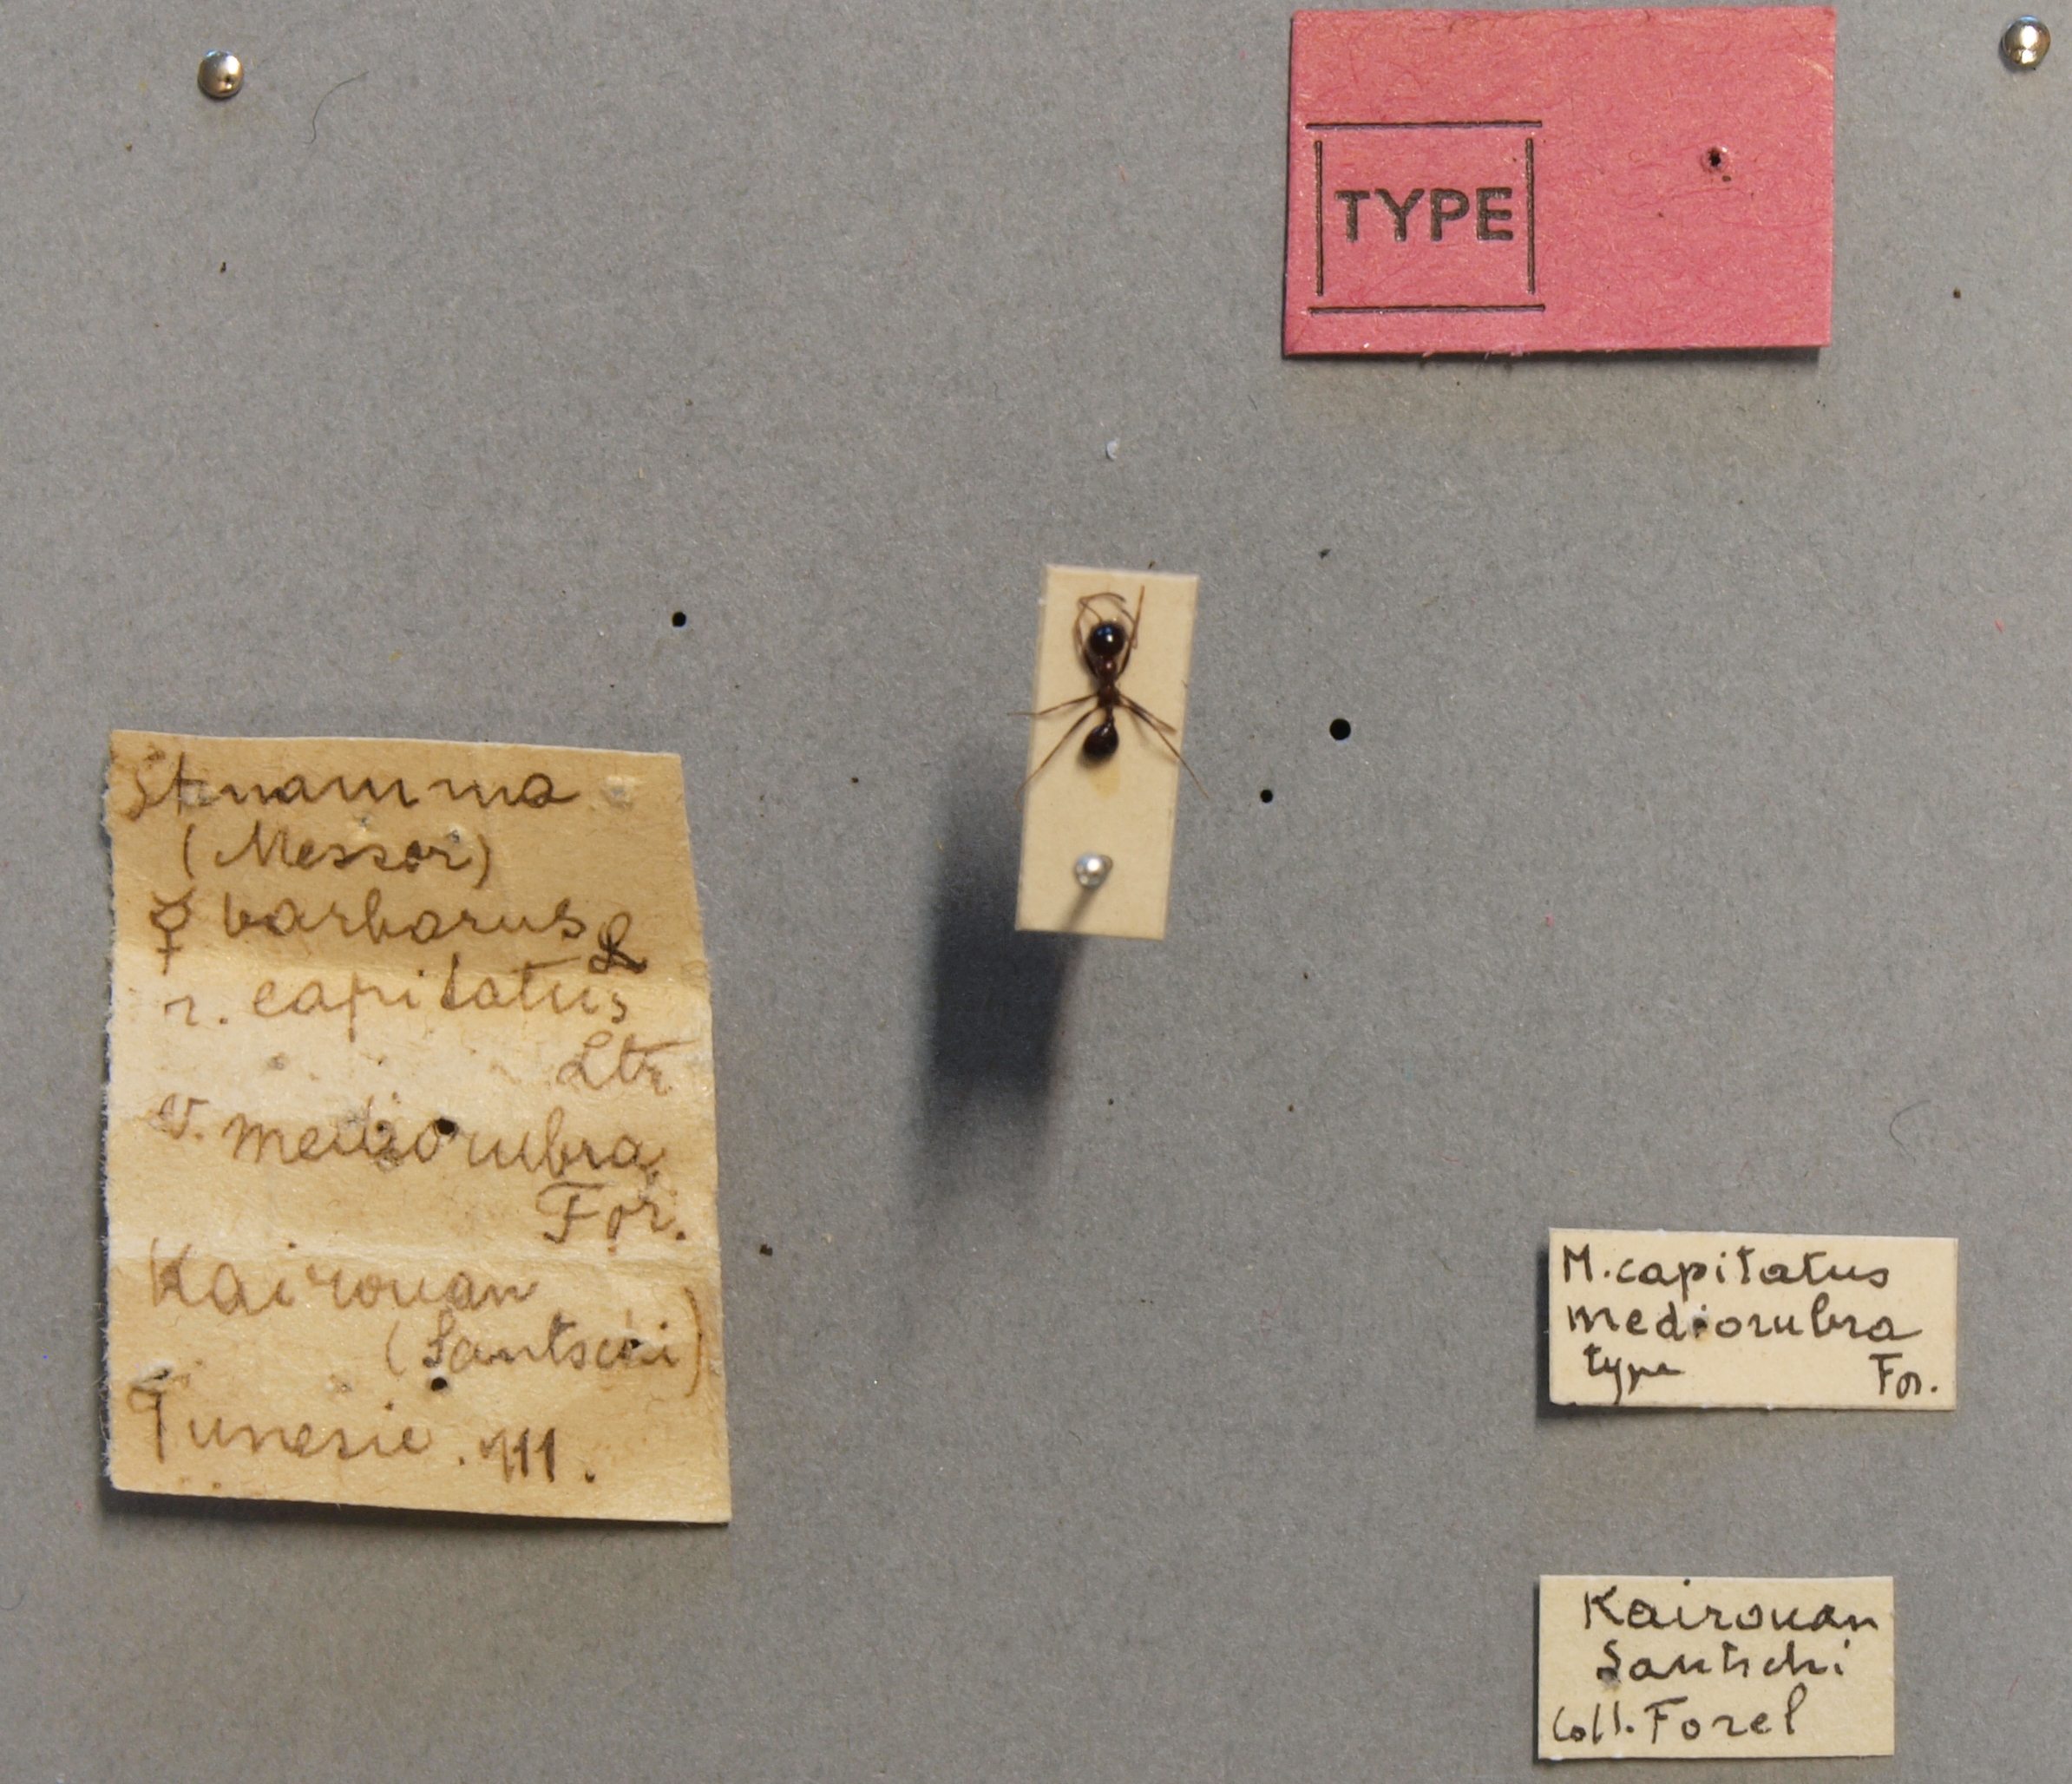 TYPE
Stenamma
(Messor)
☿ barbarus L
r. capitatus
Ltr
v. mediorubra
For.
Kairouan
(Santschi)
Tunesie.
M. capitatus
mediorubra
type For.
Kairouan
Santschi
Coll. Forel